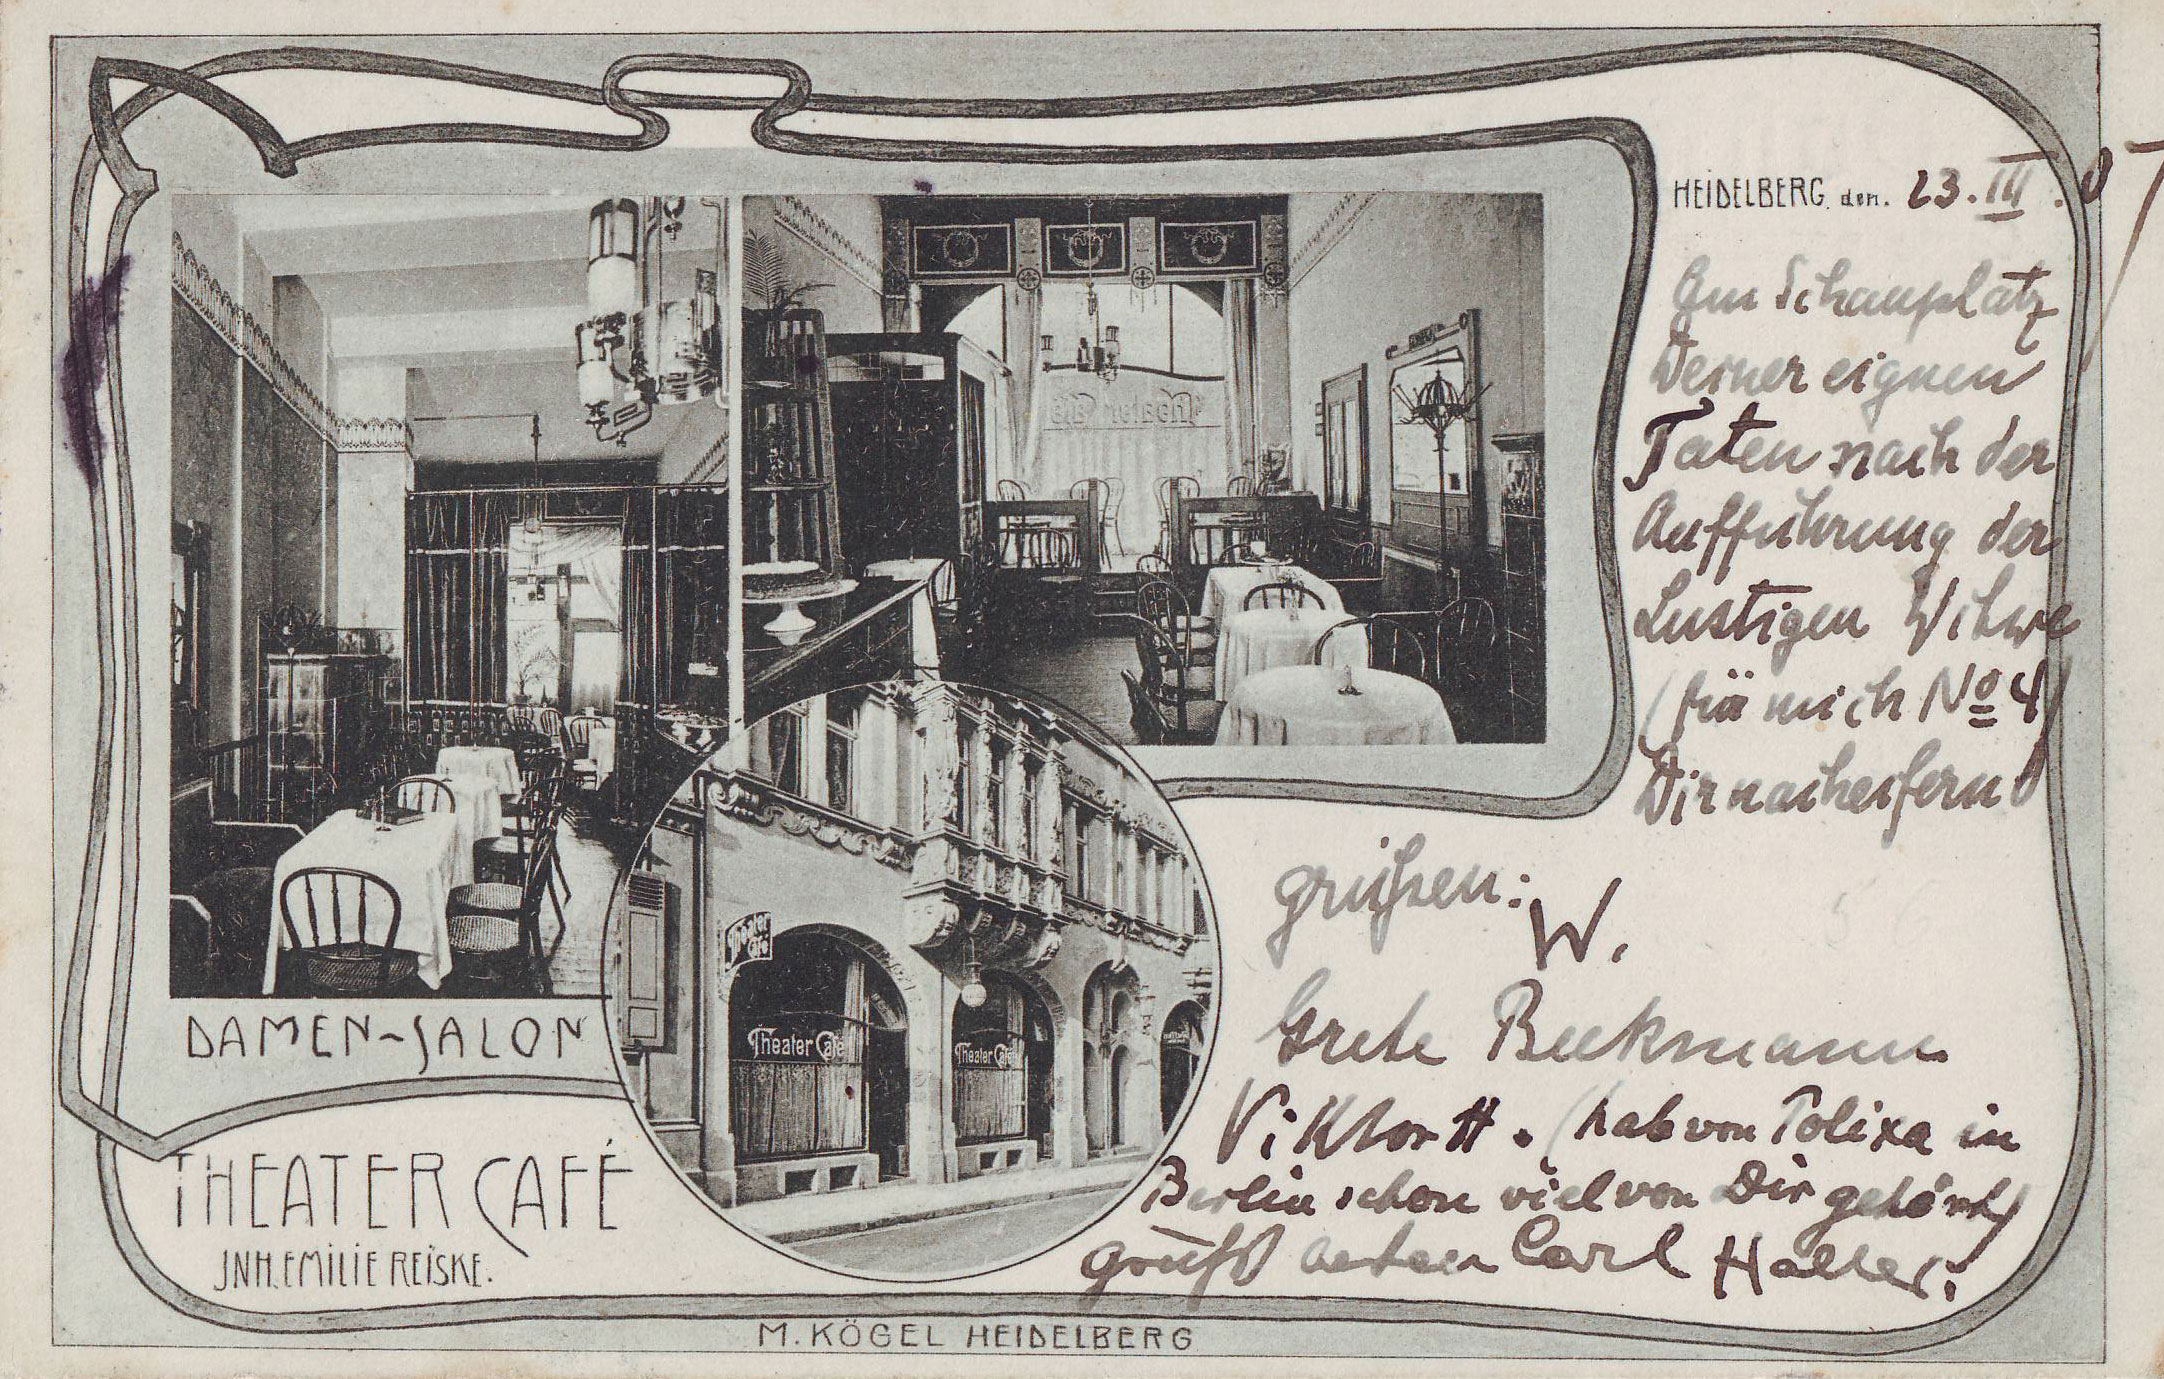 HEIDELBERG, den. 23. III. 07
Am Schauplatz
Deiner eignen
Taten nach der
Aufführung der
Lustigen Witwe
(für mich No 4)
Dir nacheifernd
grüßen:
W.
Grete Beekmann
Viktor H. (hab von Tolixa in
Berlin schon viel von Dir gehört)
Gruß Carl
DAMEN-SALON
THEATER CAFÉ
JNH. EMILIE REISKE.
Theater Café
Theater Café
Theater Café
M. KÖGEL HEIDELBERG